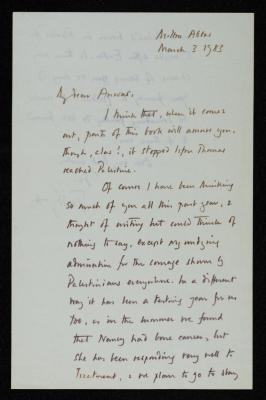 Milton Abbas
March 3 1983
My dear Anwar.
I think that, when it comes
out, parts of this book will amuse you,
though, alas!, it stopped before Thomas
reached Palestine.
Of course I have been thinking
so much of you all this past year, &
thought of writing but could think of
nothing to say, except my undying
admiration for the courage shown by
Palestinians everywhere. In a different
way it has been a testing year for us
too, as in the summer we found
that Nancy had bone cancer, but
she has been responding very well to
treatment, & we plan to go to stay